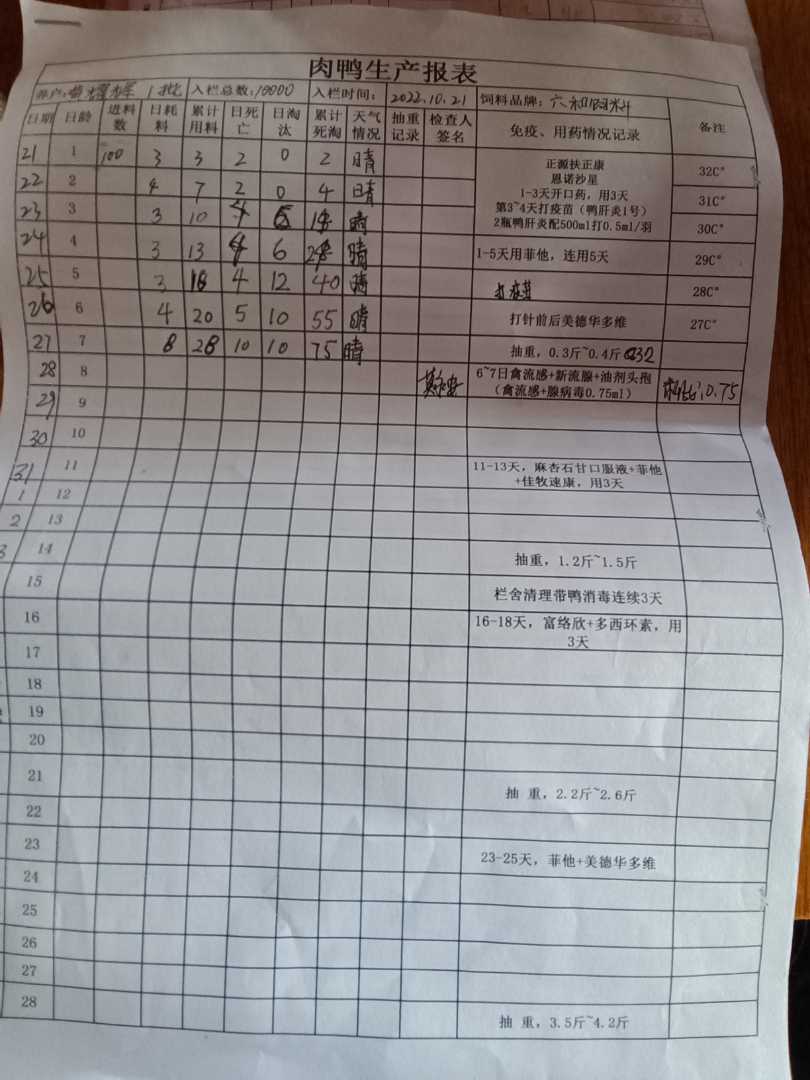 肉鸭生产报表
养户: 1批 入栏总数:10000 入栏时间: 2022.10.21 饲料品牌:六和饲料
日期 日龄 进料数 日耗料 累计用料 日死亡 日淘汰 累计死淘 天气情况 抽重记录 检查人签名 免疫、用药情况记录 备注
21 1 100 3 3 2 0 2 晴 正源扶正康 32C°
恩诺沙星
22 2 4 7 2 0 4 晴 1-3天开口药,用3天 31C°
第3~4天打疫苗(鸭肝炎1号)
23 3 3 10 4 晴 2瓶鸭肝炎配500ml打0.5ml/羽 30C°
24 4 3 13 4 6 晴 1-5天用菲他,连用5天 29C°
25 5 3 4 12 40 晴 打疫苗 28C°
26 6 4 20 5 10 55 晴 打针前后美德华多维 27C°
27 7 8 28 10 10 75 晴 抽重,0.3斤~0.4斤 032
28 8 6~7日禽流感+新流腺+油剂头孢 料比:0.75
(禽流感+腺病毒0.75ml)
29 9
30 10
31 11 11-13天,麻杏石甘口服液+菲他
+佳牧速康,用3天
1 12
2 13
3 14 抽重,1.2斤~1.5斤
15 栏舍清理带鸭消毒连续3天
16 16-18天,富络欣+多西环素,用
3天
17
18
19
20
21 抽 重,2.2斤~2.6斤
22
23 23-25天,菲他+美德华多维
24
25
26
27
28 抽 重,3.5斤~4.2斤